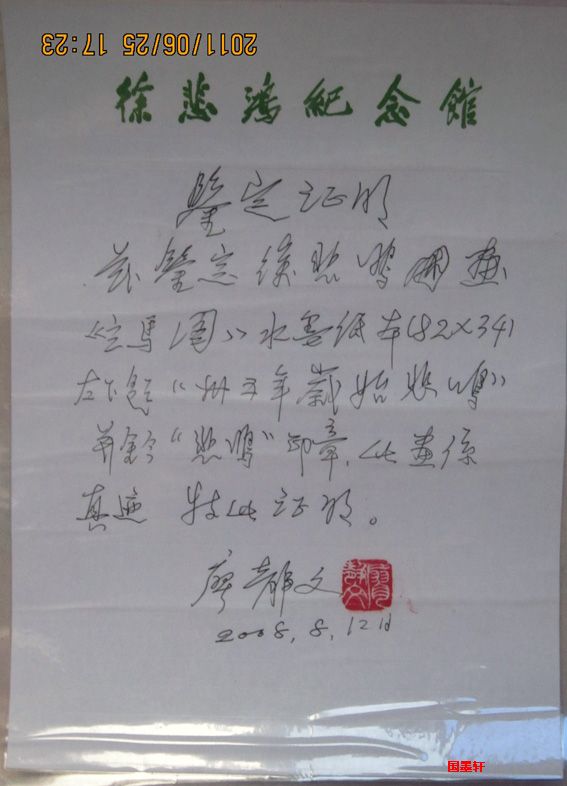 2011/06/25 17:23
徐悲鸿紀念館
鉴定证明
兹鉴定徐悲鸿国画
《立马图》水墨纸本(82×34)
左下题“卅五年岁始悲鸿”
并钤“悲鸿”印章，此画系
真迹 特此证明。
廖静文
2008.8.12日
国墨轩